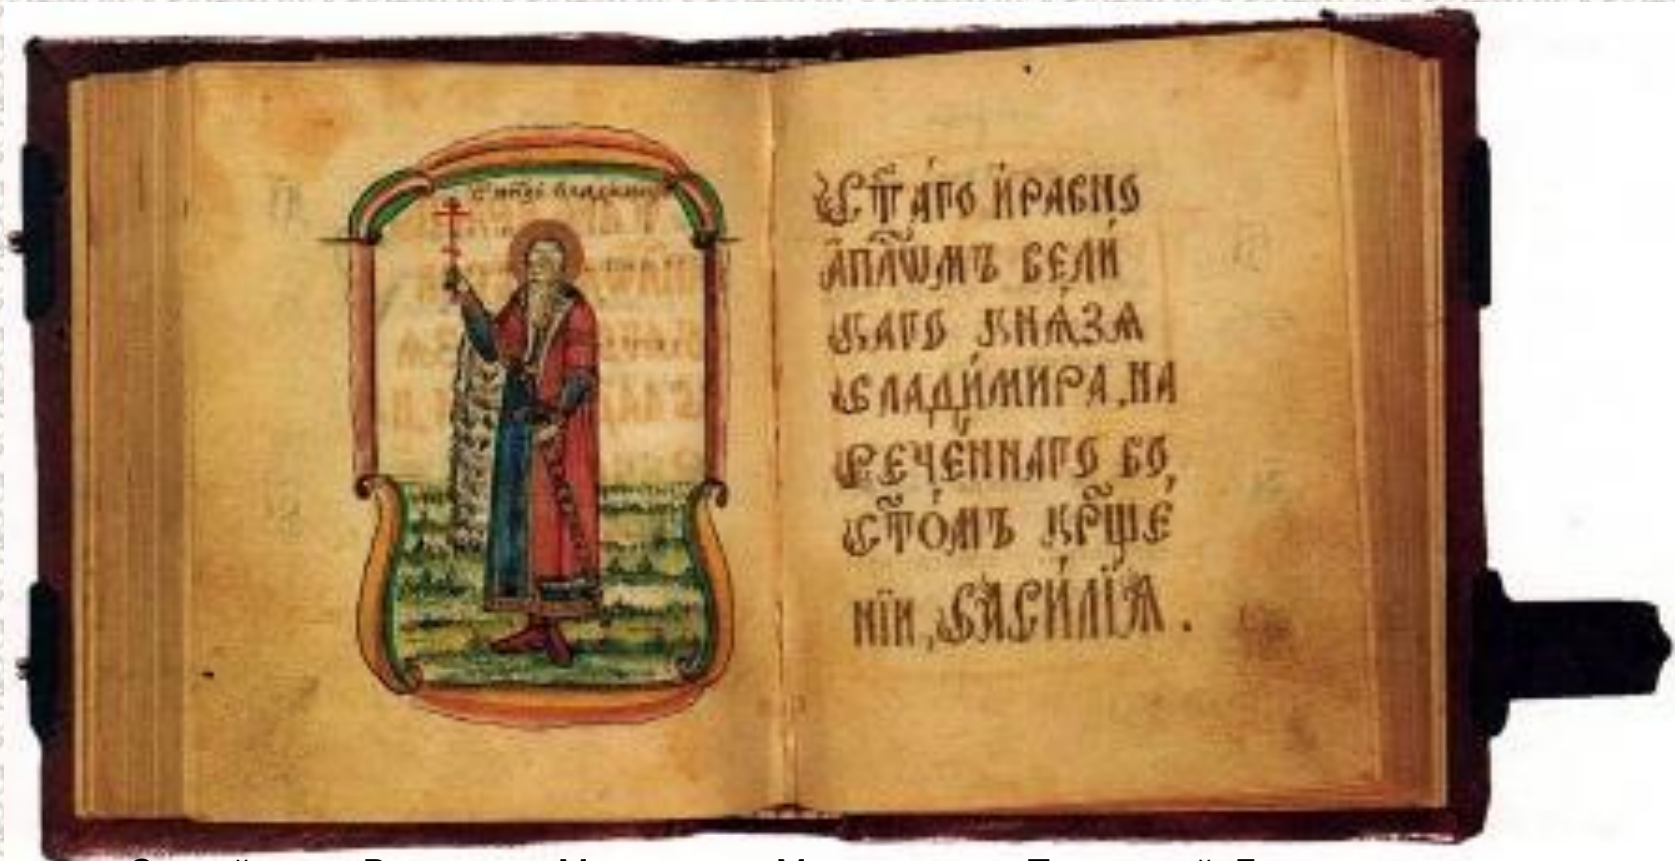 С͠тый Владимиръ
С͠таго и҆ равно
а҆пⷭ҇лѡмъ вели
каго кнѧ́зѧ
влади́мира, на
рече́ннаго во,
с͠то́мъ кр͠ще́
нїи, васи́лїѧ.